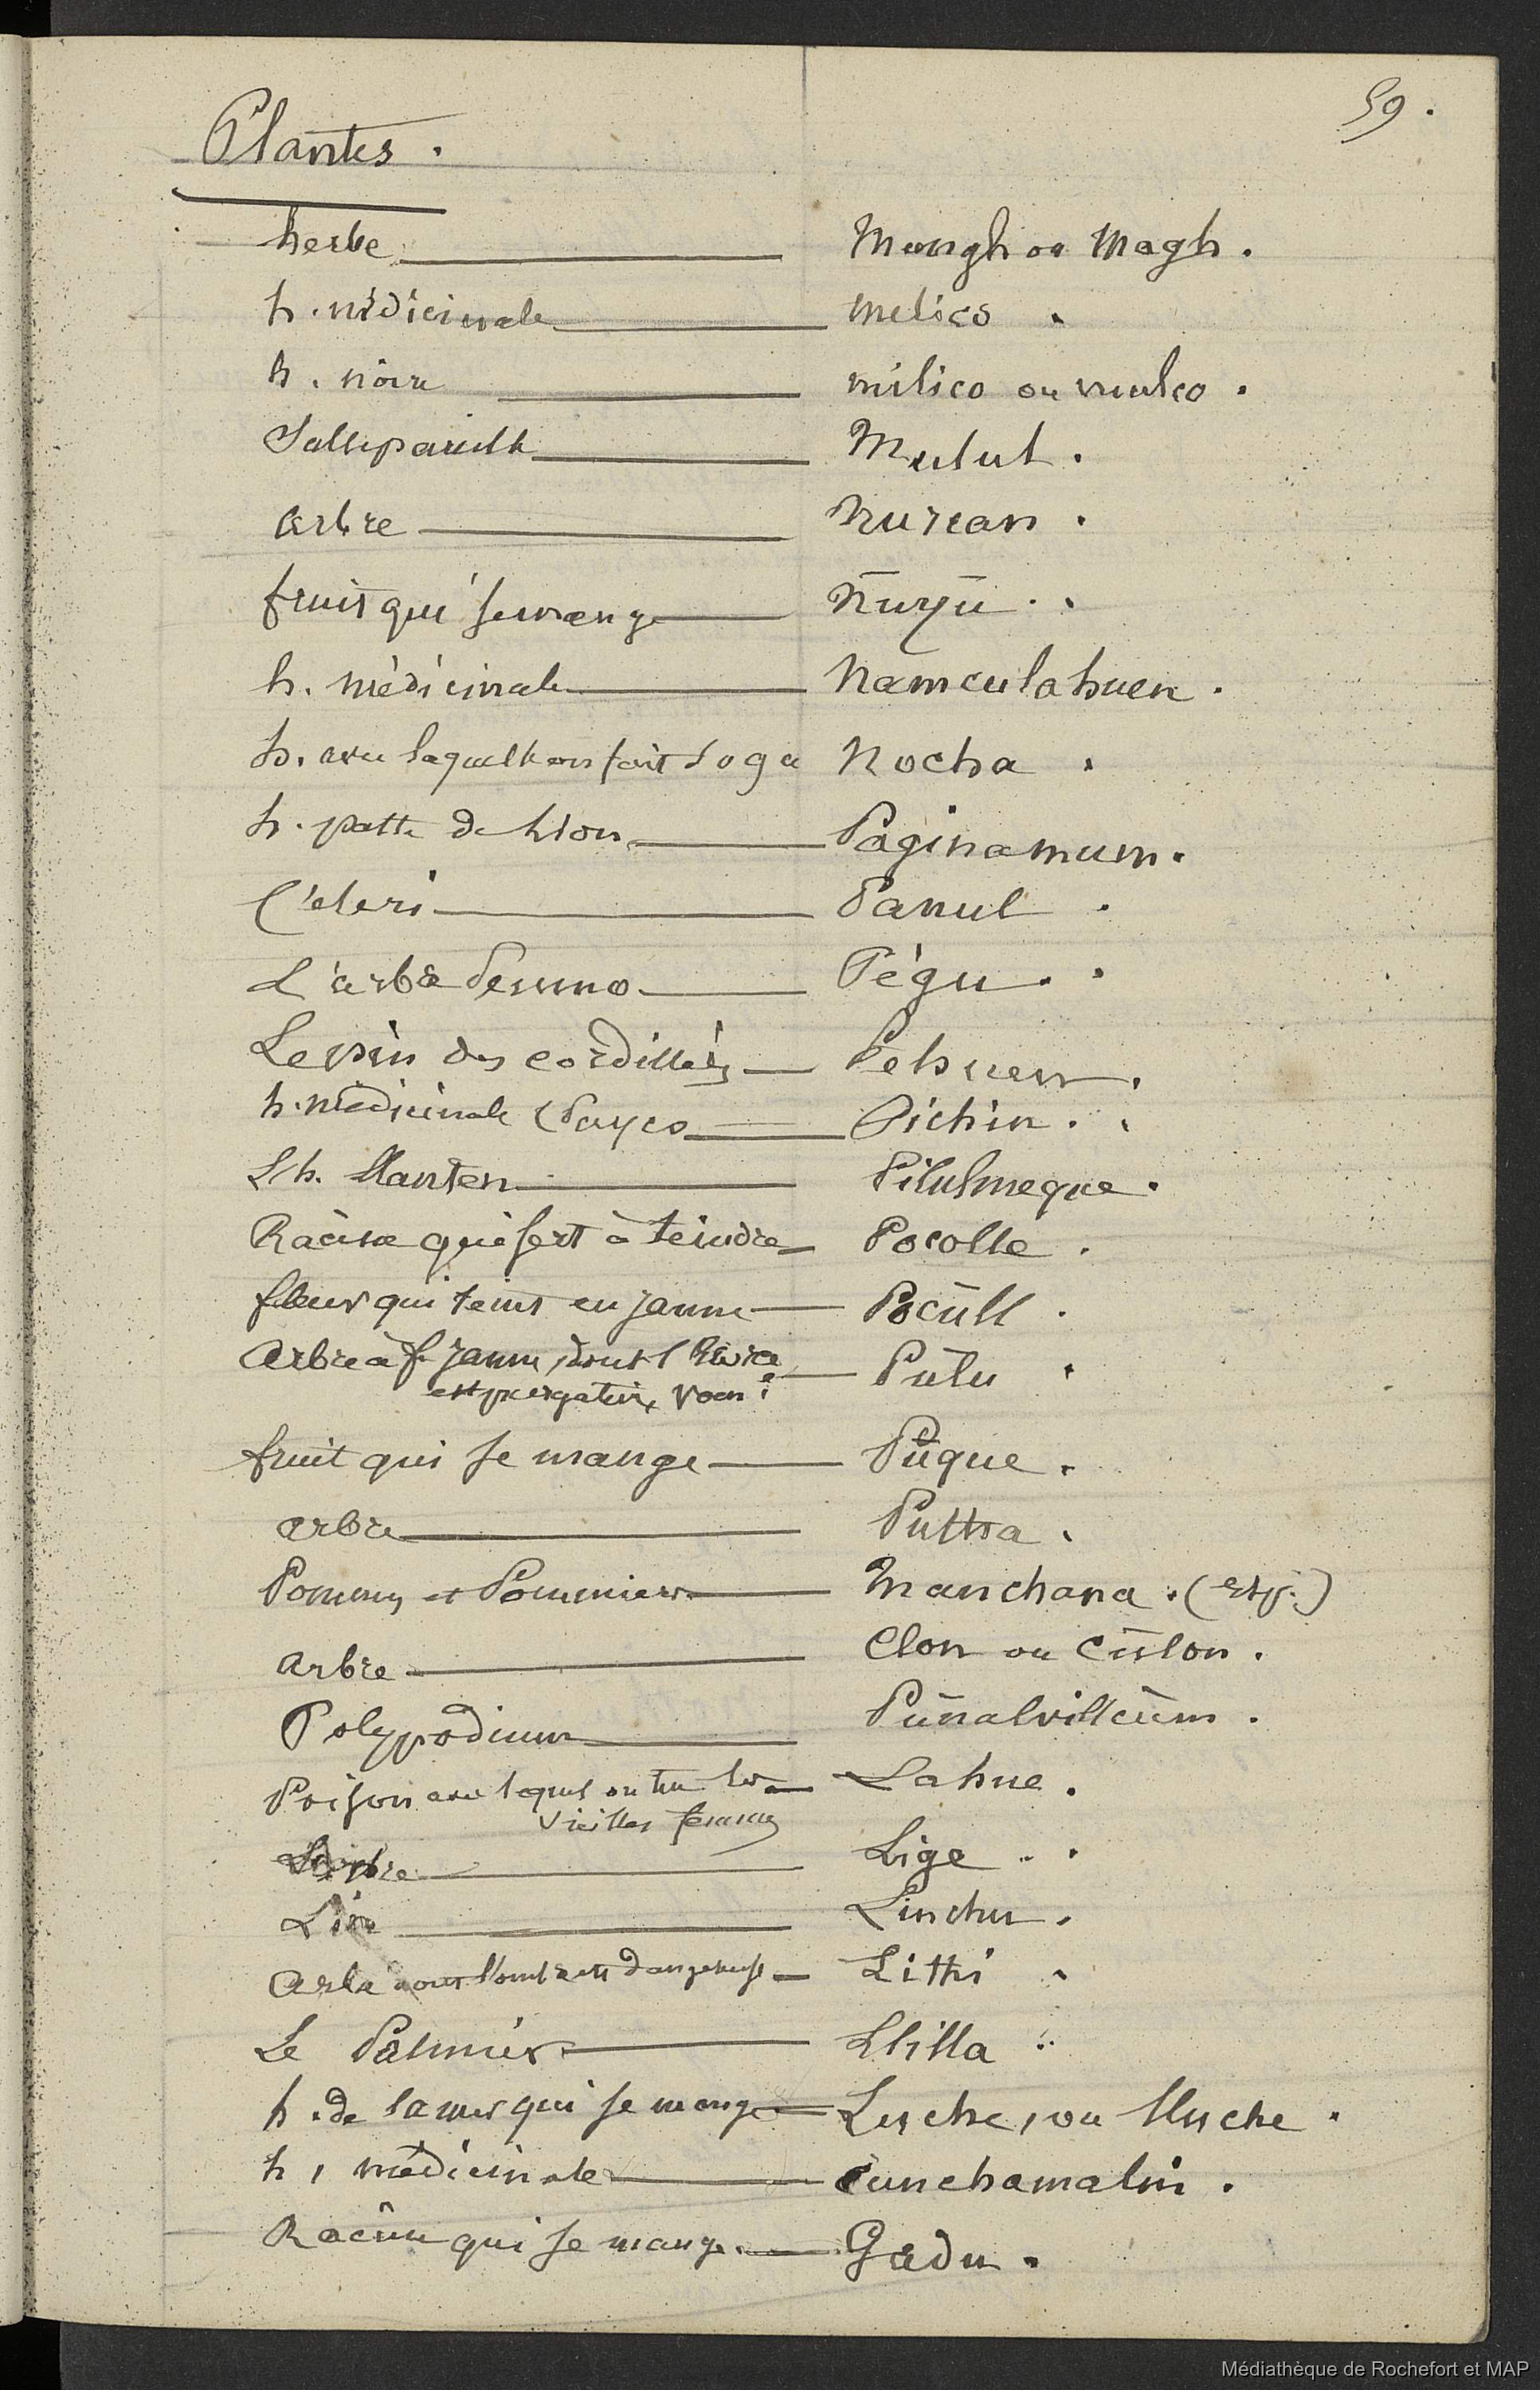 59.
Plantes.
herbe — Mengh ou Megh.
h. médicinale — melico.
h. noire — milico ou mulco.
Salsepareille — Mulul.
arbre — Nurcan.
fruit qui se mange — Nuyu.
h. médicinale — Namculahuen.
h. avec laquelle on fait Soga — Nocha.
h. patte de Lion — Paginamum.
Céleri — Panul.
L'arbre Peumo — Pégu.
Le pin des cordillères — Pehuen.
h. médicinale (Payco — Pichin.
L h. llanten — Pilulmeque.
Racine qui sert à teindre — Pocolle.
fleur qui teint en jaune — Pocüll.
Arbre à f. jaune, dont l
est purgative — Pülu.
fruit qui se mange — Püque.
arbre — Puttra.
Pommes et Pommiers — Manchana. (esp.)
arbre — Clon ou Cülon.
Polypodium — Pünalvillcüm.
Poison avec lequel on tue les — Lahue.
vieilles femmes
arbre — Lige.
Lin — Linchu.
Arbre dont l'ombre est dangereuse — Litthi.
Le Palmier — Llilla.
h. de la mer qui se mange — Luche, ou lluche.
h, médicinale — cunchamalin.
Racine qui se mange — Gadu.
Médiathèque de Rochefort et MAP